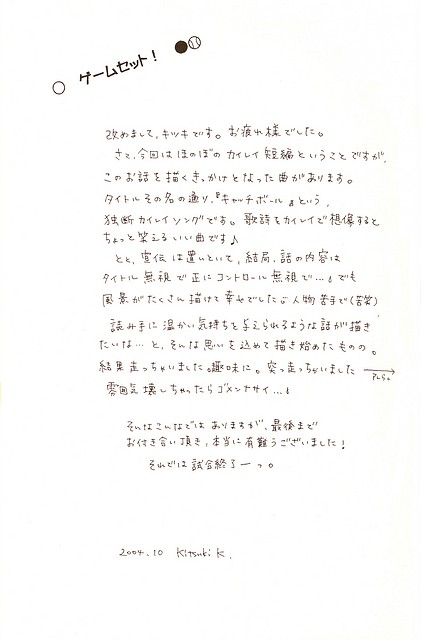 ゲームセット!
改めまして、キツキです。お疲れ様でした。
さて、今回はほのぼのカイレイ短編ということですが、
このお話を描くきっかけとなった曲があります。
タイトルその名の通り、『キャッチボール』という、
独断カイレイソングです。歌詩をカイレイで想像すると
ちょっと笑えるいい曲です♪
とと、宣伝は置いといて、結局、話の内容は
タイトル無視で正にコントロール無視で…。でも
風景がたくさん描けて幸せでした♪人物苦手で(苦笑)
読み手に温かい気持ちを与えられるような話が描き
たいな…と、そんな思いを込めて描き始めたものの。
結果走っちゃいました。趣味に。突っ走っちゃいました
アレら。
雰囲気壊しちゃったらゴメンナサイ…。
そんなこんなではありますが、最後まで
お付き合い頂き、本当に有難うございました!
それでは試合終了ーっ。
2004.10 Kitsuki K.